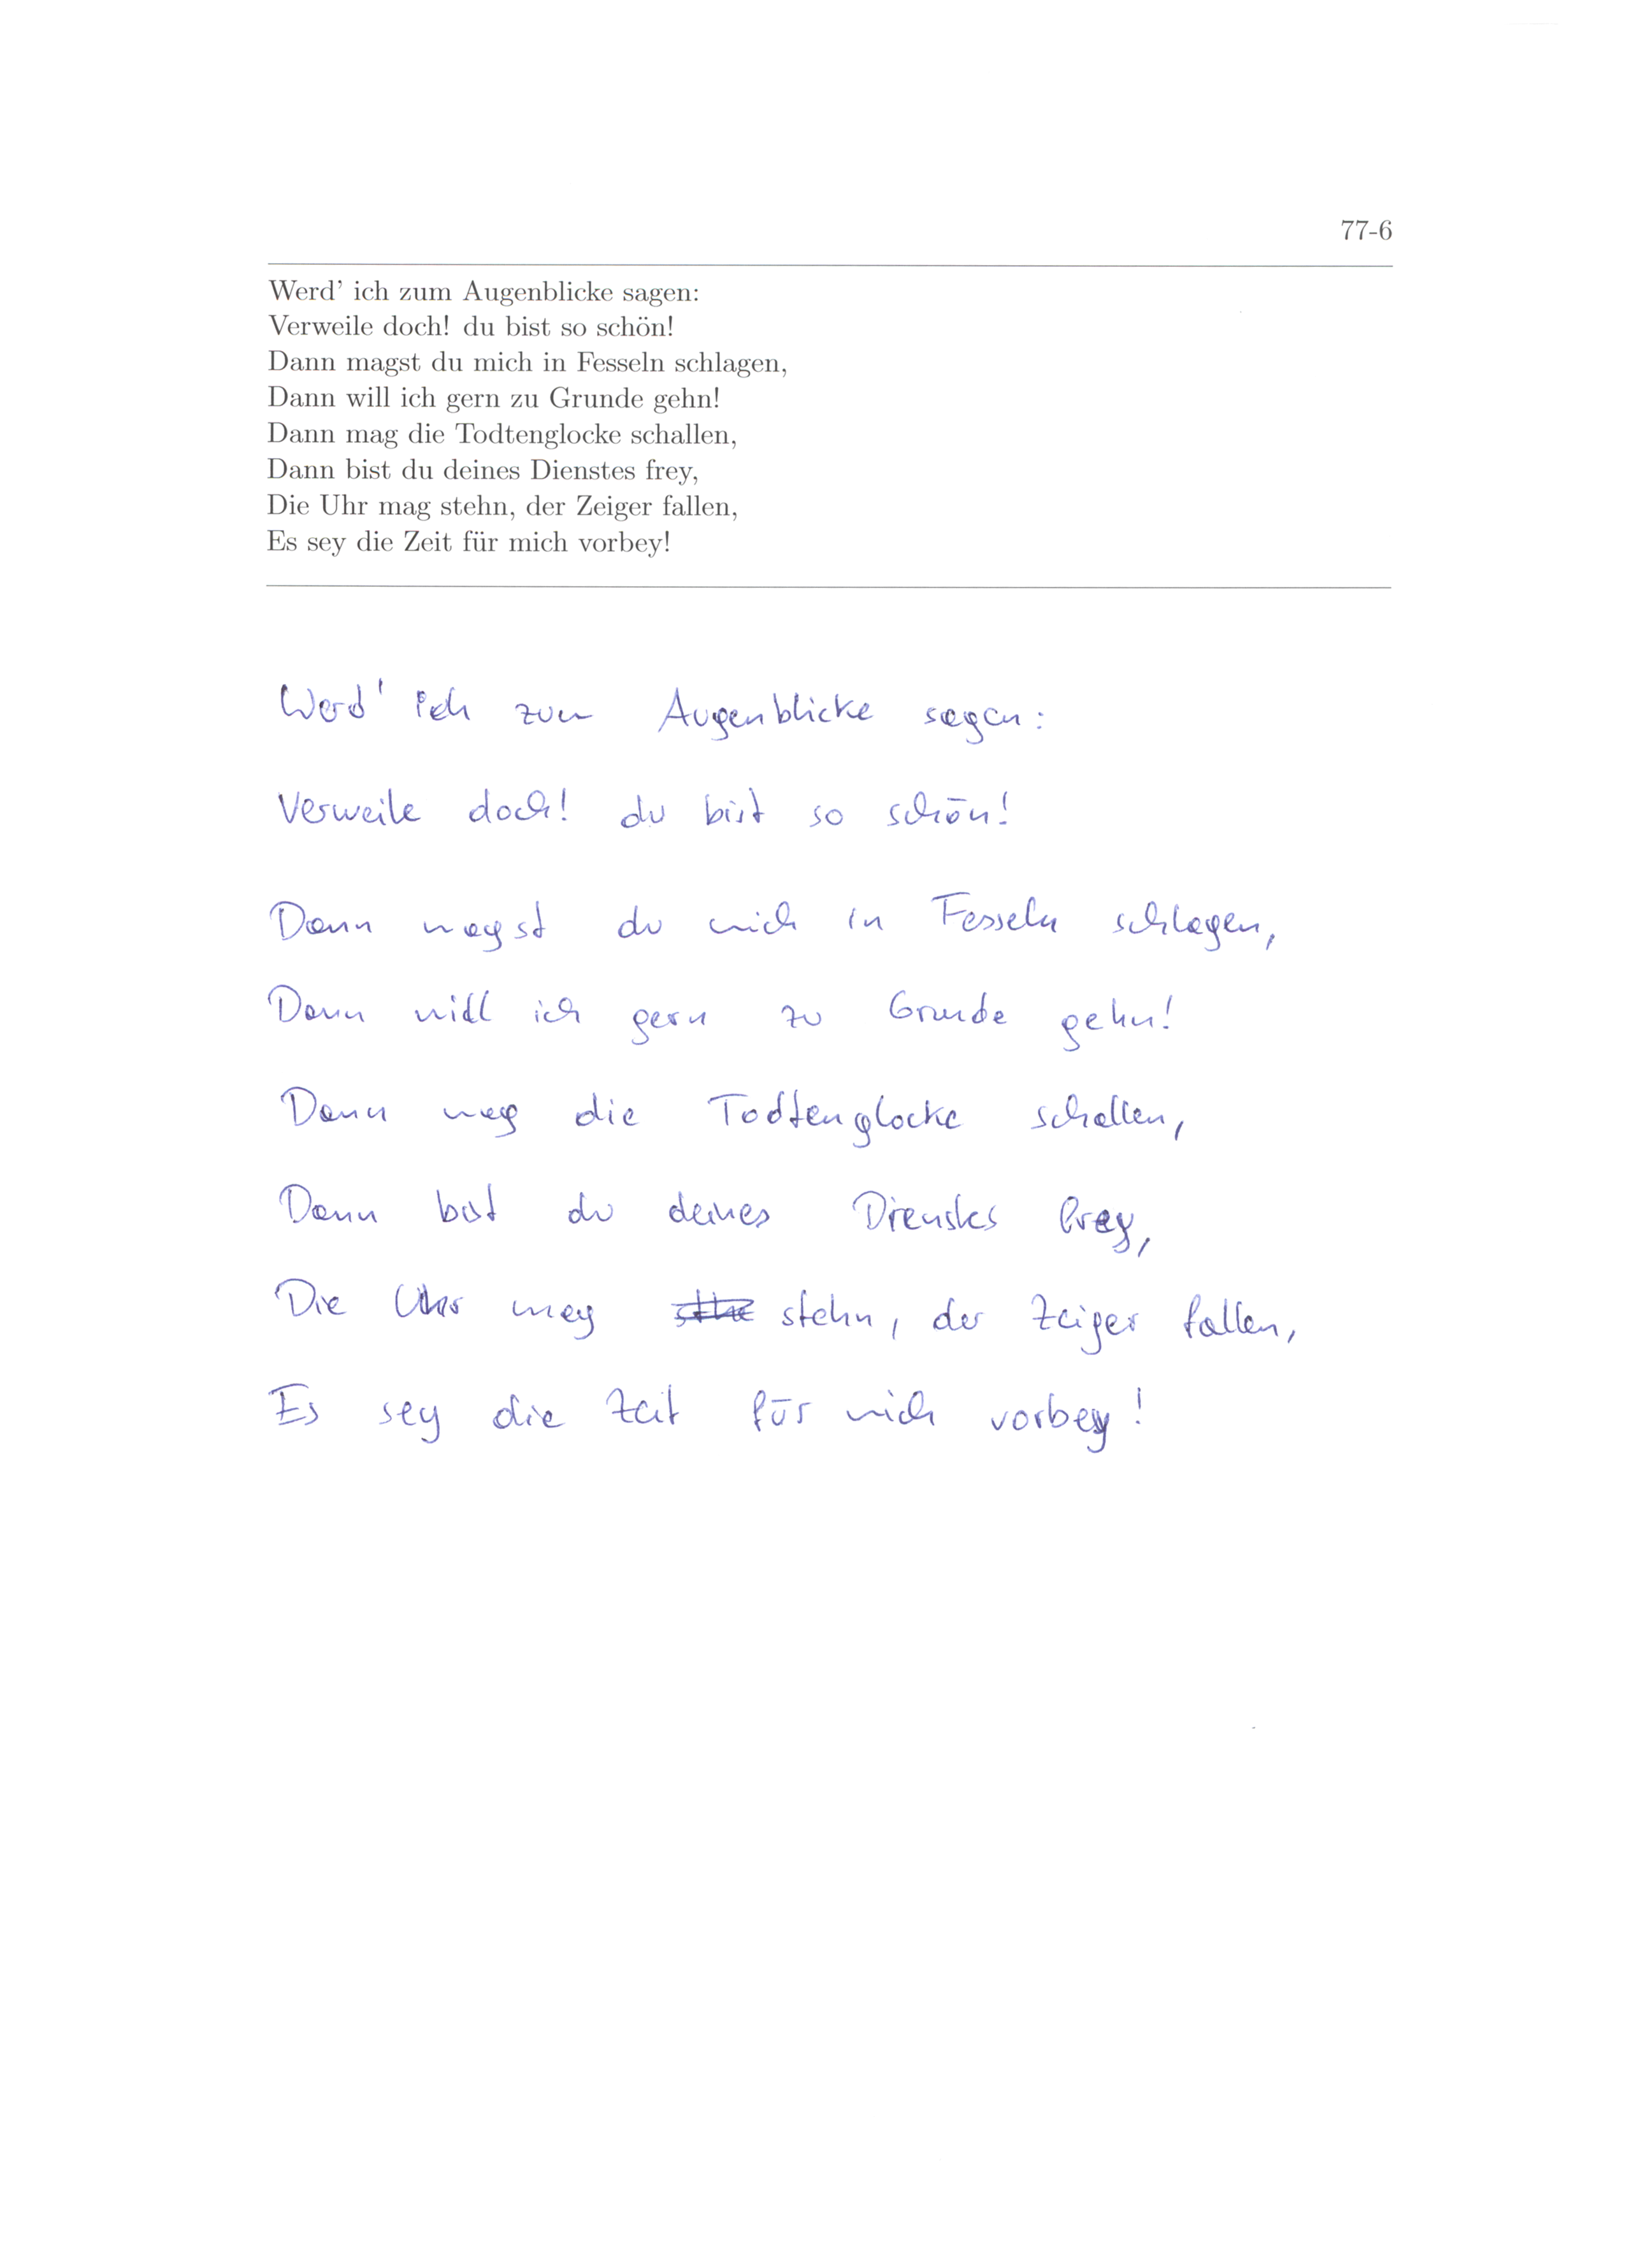 77-6
Werd' ich zum Augenblicke sagen:
Verweile doch! du bist so schön!
Dann magst du mich in Fesseln schlagen,
Dann will ich gern zu Grunde gehn!
Dann mag die Todtenglocke schallen,
Dann bist du deines Dienstes frey,
Die Uhr mag stehn, der Zeiger fallen,
Es sey die Zeit für mich vorbey!
Werd' ich zum Augenblicke sagen:
Verweile doch! du bist so schön!
Dann magst du mich in Fesseln schlagen,
Dann will ich gern zu Grunde gehn!
Dann mag die Todtenglocke schallen,
Dann bist du deines Dienstes frey,
Die Uhr mag stehn, der Zeiger fallen,
Es sey die Zeit für mich vorbey!